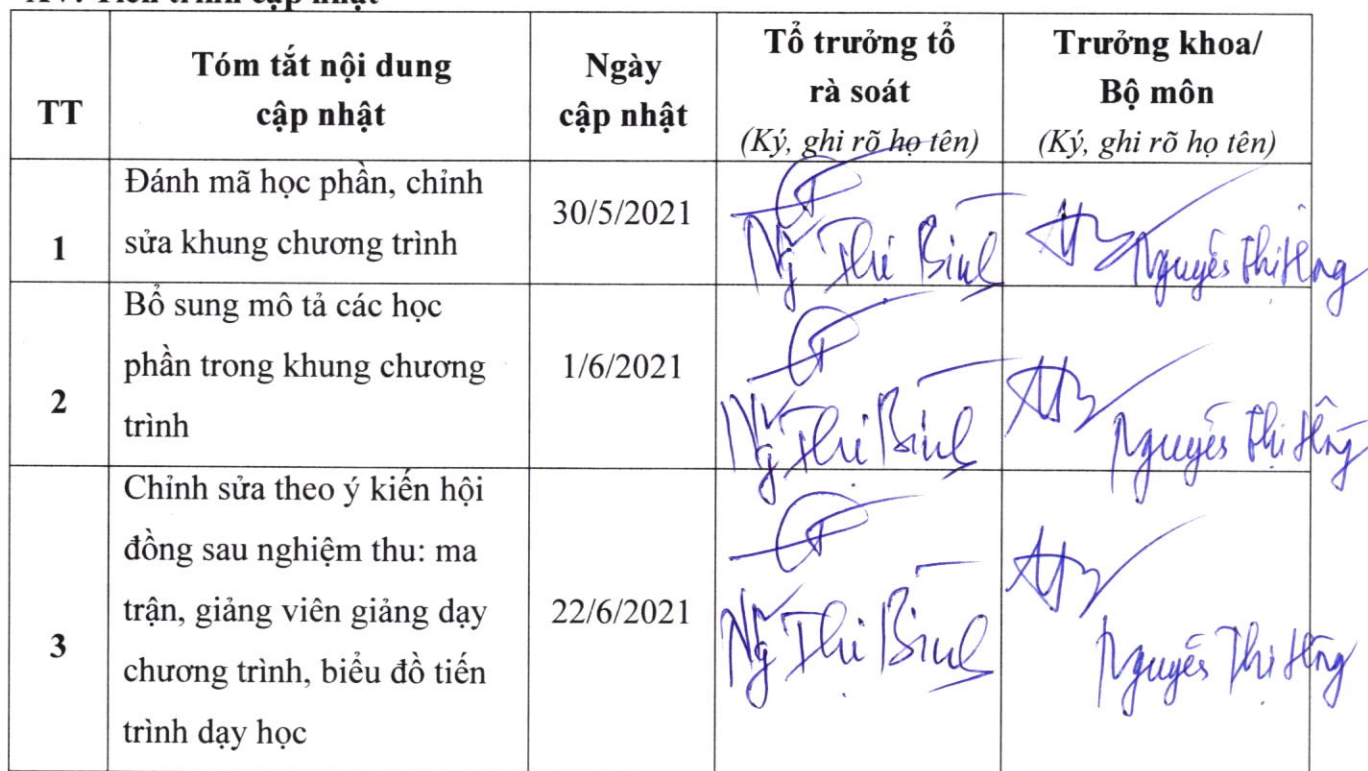 XV. Tiến trình cập nhật
TT
Tóm tắt nội dung
cập nhật
Ngày
cập nhật
Tổ trưởng tổ
rà soát
(Ký, ghi rõ họ tên)
Trưởng khoa/
Bộ môn
(Ký, ghi rõ họ tên)
1
Đánh mã học phần, chỉnh
sửa khung chương trình
30/5/2021
Ng̃ Thị Bình
Nguyễn Thị Hồng
2
Bổ sung mô tả các học
phần trong khung chương
trình
1/6/2021
Ng̃ Thị Bình
Nguyễn Thị Hồng
3
Chỉnh sửa theo ý kiến hội
đồng sau nghiệm thu: ma
trận, giảng viên giảng dạy
chương trình, biểu đồ tiến
trình dạy học
22/6/2021
Ng̃ Thị Bình
Nguyễn Thị Hồng